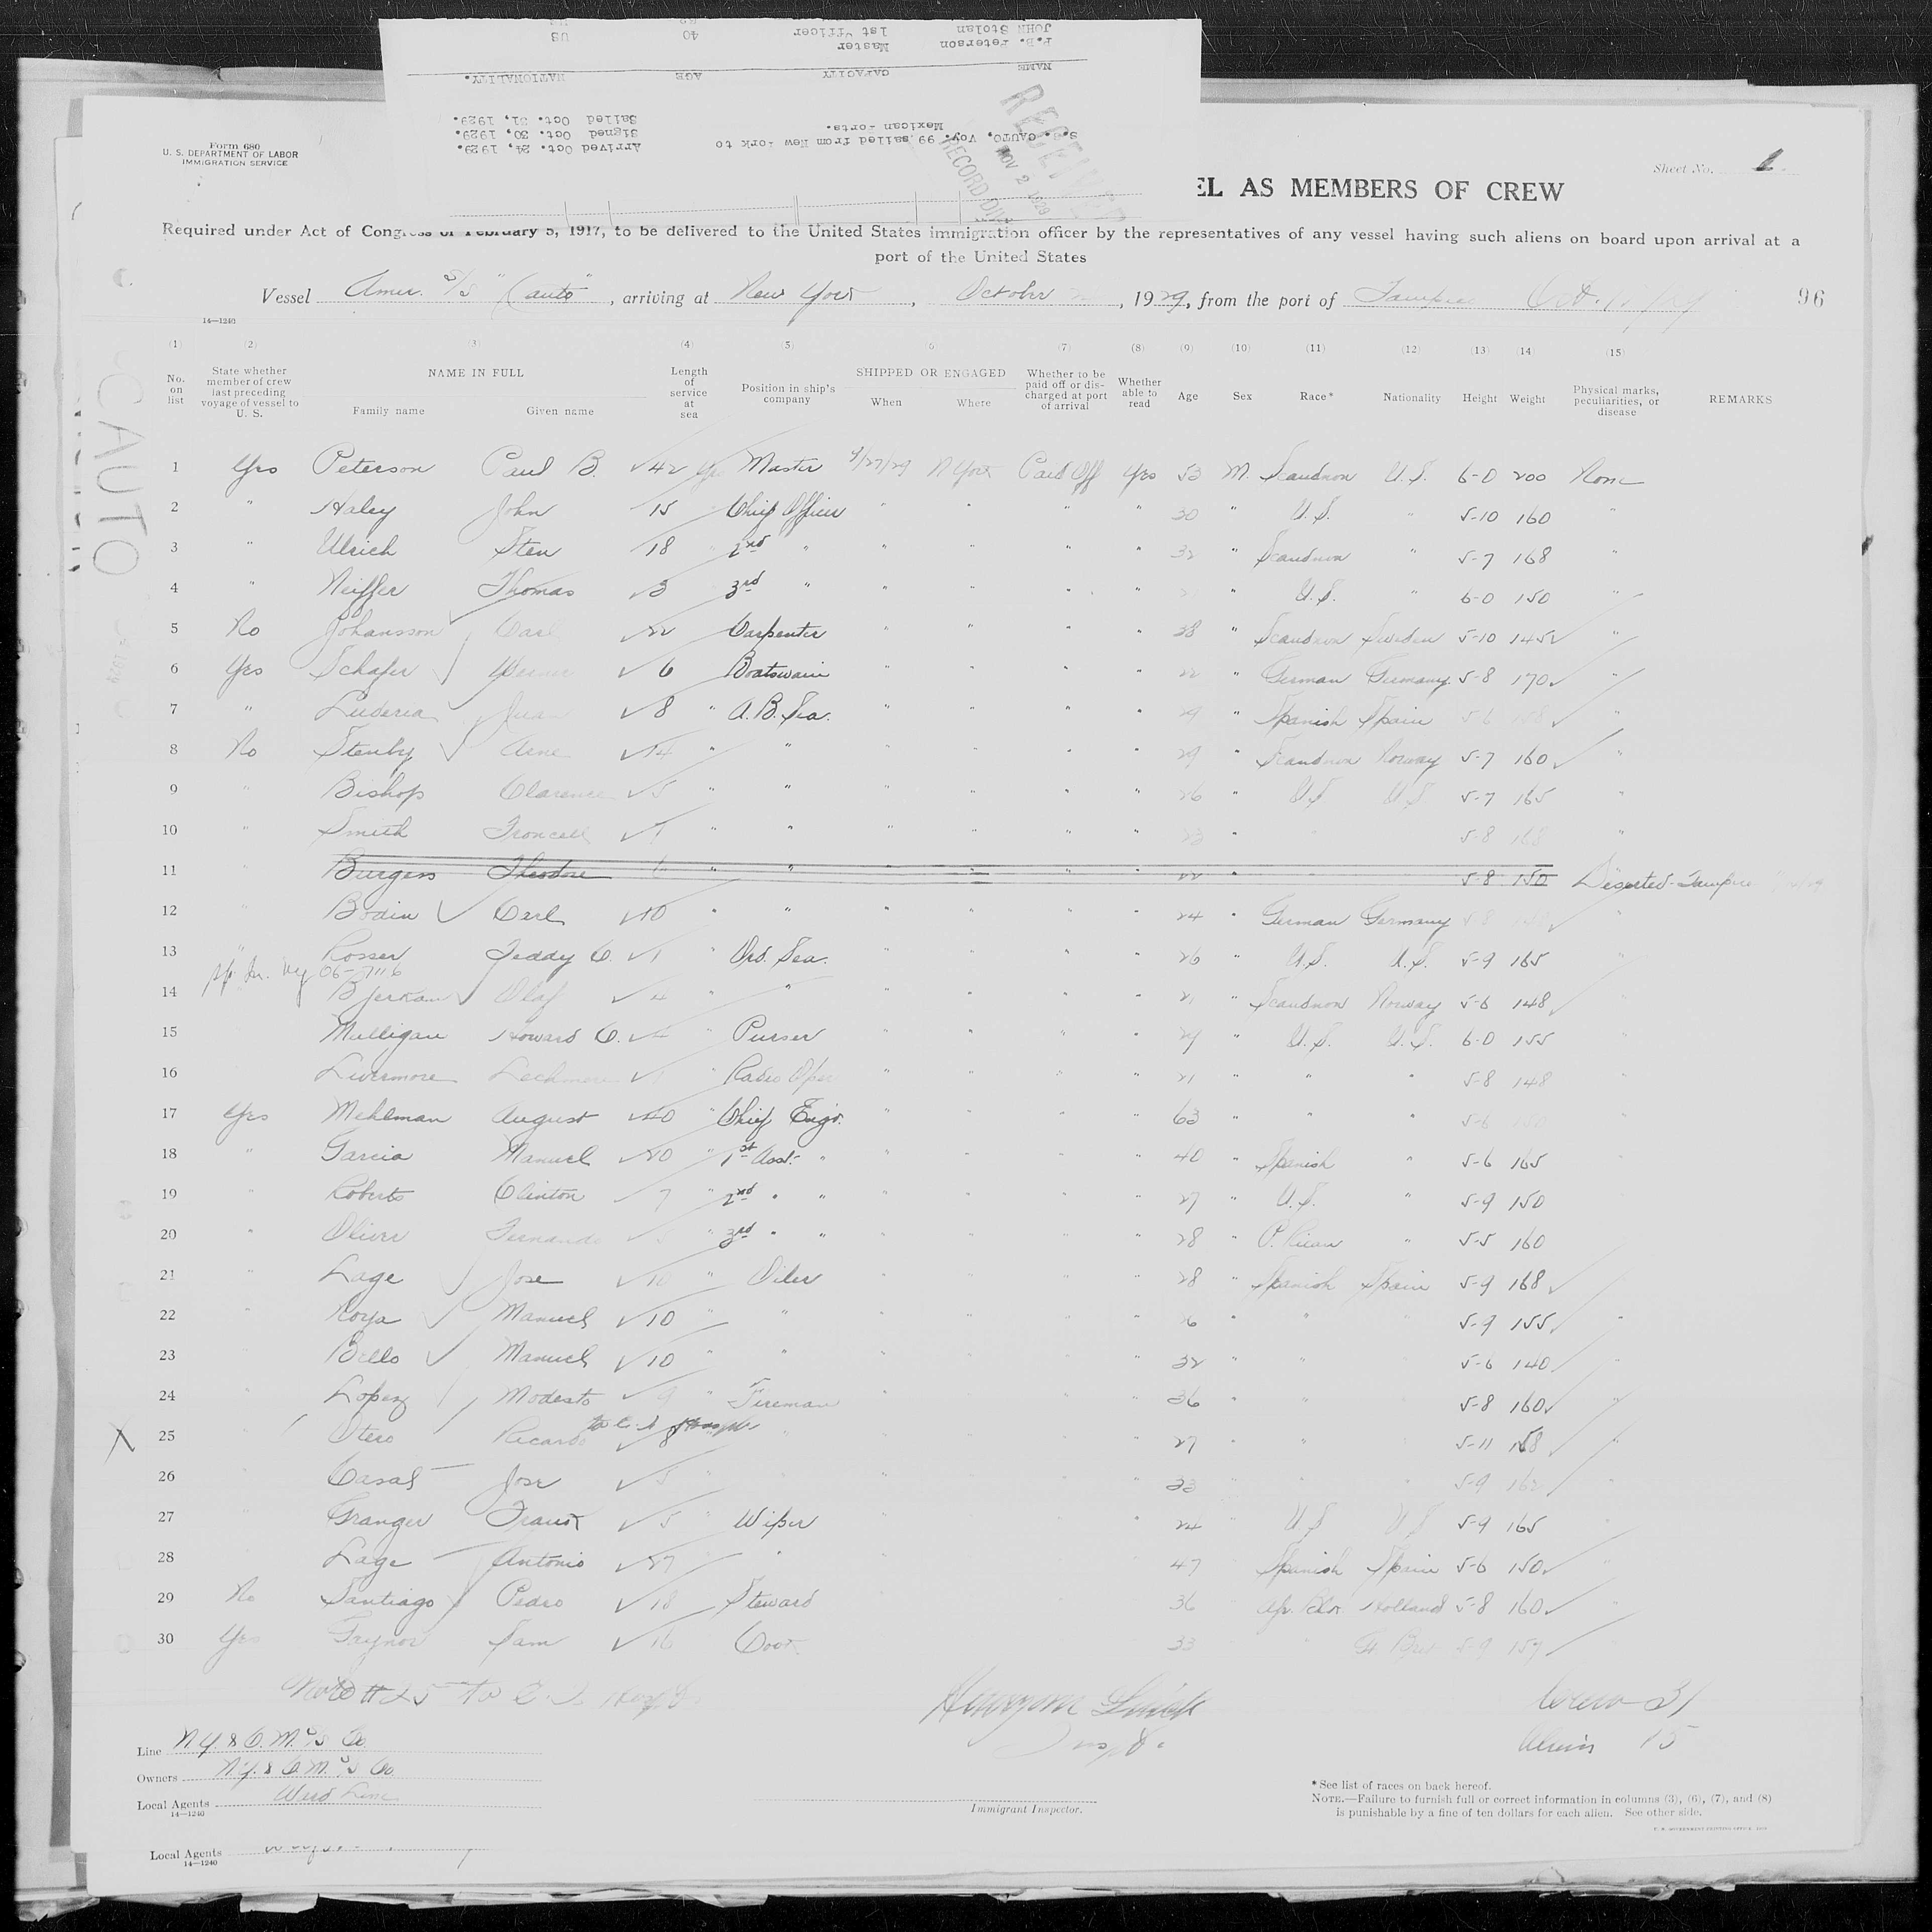 JOHN Stolan 1st Officer 40 US
P.B. Peterson Master
NAME CAPACITY AGE NATIONALITY.
S.S. CAUTO, Voy. 99 sailed from New York to Mexican Ports.
Arrived Oct. 24, 1929.
Signed Oct. 30, 1929.
Sailed Oct. 31, 1929.
RECEIVED
NOV 2 1929
RECORD DIV
Form 680
U. S. DEPARTMENT OF LABOR
IMMIGRATION SERVICE
Sheet No. 1.
EL AS MEMBERS OF CREW
Required under Act of Congress of February 5, 1917, to be delivered to the United States immigration officer by the representatives of any vessel having such aliens on board upon arrival at a
port of the United States
Vessel Amer. S/S "Cauto", arriving at New York, October, 1929, from the port of Tampico Oct.
96
14—1240
CAUTO
(1) (2) (3) (4) (5) (6) (7) (8) (9) (10) (11) (12) (13) (14) (15)
No. on list
State whether member of crew last preceding voyage of vessel to U. S.
NAME IN FULL
Family name Given name
Length of service at sea
Position in ship's company
SHIPPED OR ENGAGED
When Where
Whether to be paid off or discharged at port of arrival
Whether able to read
Age Sex Race* Nationality Height Weight
Physical marks, peculiarities, or disease
REMARKS
1 Yes Peterson Paul B. 42 Master 9/27/29 N York Paid Off Yes 53 M. Scandnvn U.S. 6-0 200 None
2 " Haley John 15 Chief Officer " " " " 30 " U.S. " 5-10 160 "
3 " Ulrich Sten 18 " 2nd " " " " " 32 " Scandnvn " 5-7 168 "
4 " Neiffer Thomas 3 3rd " " " " " 21 " U.S. " 6-0 150 "
5 No Johansson Carl 22 Carpenter " " " " 38 " Scandnvn Sweden 5-10 145 "
6 Yes Schafer Werner 6 Boatswain " " " " 22 " German Germany 5-8 170 "
7 " Luderia Juan 8 " A.B. Sea. " " " " 29 " Spanish Spain 5-6 158 "
8 No Stenby Arne 14 " " " " " " 29 " Scandnvn Norway 5-7 160 "
9 " Bishop Clarence 5 " " " " " " 26 " U.S. U.S. 5-7 165 "
10 " Smith 1 " " " " " " 23 " 5-8 168 "
11 " Burgess Theodore 6 " " " " " " 22 " 5-8 150 Deserted - Tampico
12 " Bodin Carl 10 " " " " " " 24 " German Germany 5-8 "
13 " Rosser Teddy C. 1 " Ord. Sea. " " " " 26 " U.S. U.S. 5-9 165 "
06-7116
14 Bjerkan Olaf 4 " " " " " " 21 " Scandnvn Norway 5-6 148 "
15 Mulligan Howard C. 4 " Purser " " " " 29 " U.S. U.S. 6-0 155 "
16 Livermore Lechmere 1 " Radio Oper " " " " 21 " " " 5-8 148 "
17 Yes Mehlman August 40 " Chief Engr. " " " " 63 " " " 5-6 150 "
18 " Garcia Manuel 20 " 1st Asst. " " " " " 40 " Spanish " 5-6 165
19 " Roberts Clinton 7 " 2nd " " " " " " 27 " U.S. " 5-9 150
20 " Oliver Fernando 5 " 3rd " " " " " " 28 " P. Rican " 5-5 160
21 " Lage Jose 10 " Oiler " " " " 28 " Spanish Spain 5-9 168
22 Roya Manuel 10 " " " " " " 26 " " " 5-9 155 "
23 Bello Manuel 10 " " " " " " 32 " " 5-6 140
24 Lopez Modesto 9 " Fireman " " " " 36 " " 5-8 160 "
to C. I. Hosp
25 Otero Ricardo 8 " " " 27 " " 5-11 158 "
26 Casas Jose 5 " " " 33 " 5-9 162 "
27 Granger Frank 5 " Wiper 24 U.S. U.S. 5-9 165
28 Lage Antonio 27 " " 47 Spanish Spain 5-6 150 "
29 No Santiago Pedro 18 Steward 36 Af. Blk. Holland 5-8 160 "
30 Yes Gaynor Sam 16 Cook 33 " Gt. Brit 5-9 157
Note #25 to C. I. Hosp
Crew 31
Aliens 15
Line N.Y. & C. M. S/S Co.
Owners N.Y. & C. M. S/S Co.
Local Agents Ward Line
14—1240
Immigrant Inspector.
* See list of races on back hereof.
NOTE.—Failure to furnish full or correct information in columns (3), (6), (7), and (8)
is punishable by a fine of ten dollars for each alien. See other side.
U. S. GOVERNMENT PRINTING OFFICE
Local Agents
14—1240